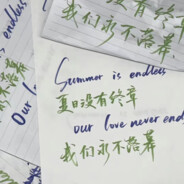 我们永不落幕
Our lo
我们永不落
Summer is endless
夏日没有终章
our love never end
我们永不落幕